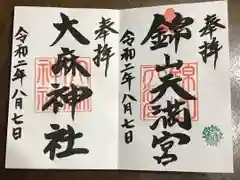 奉拝
錦山天満宮
令和二年八月七日
奉拝
大麻神社
令和二年八月七日